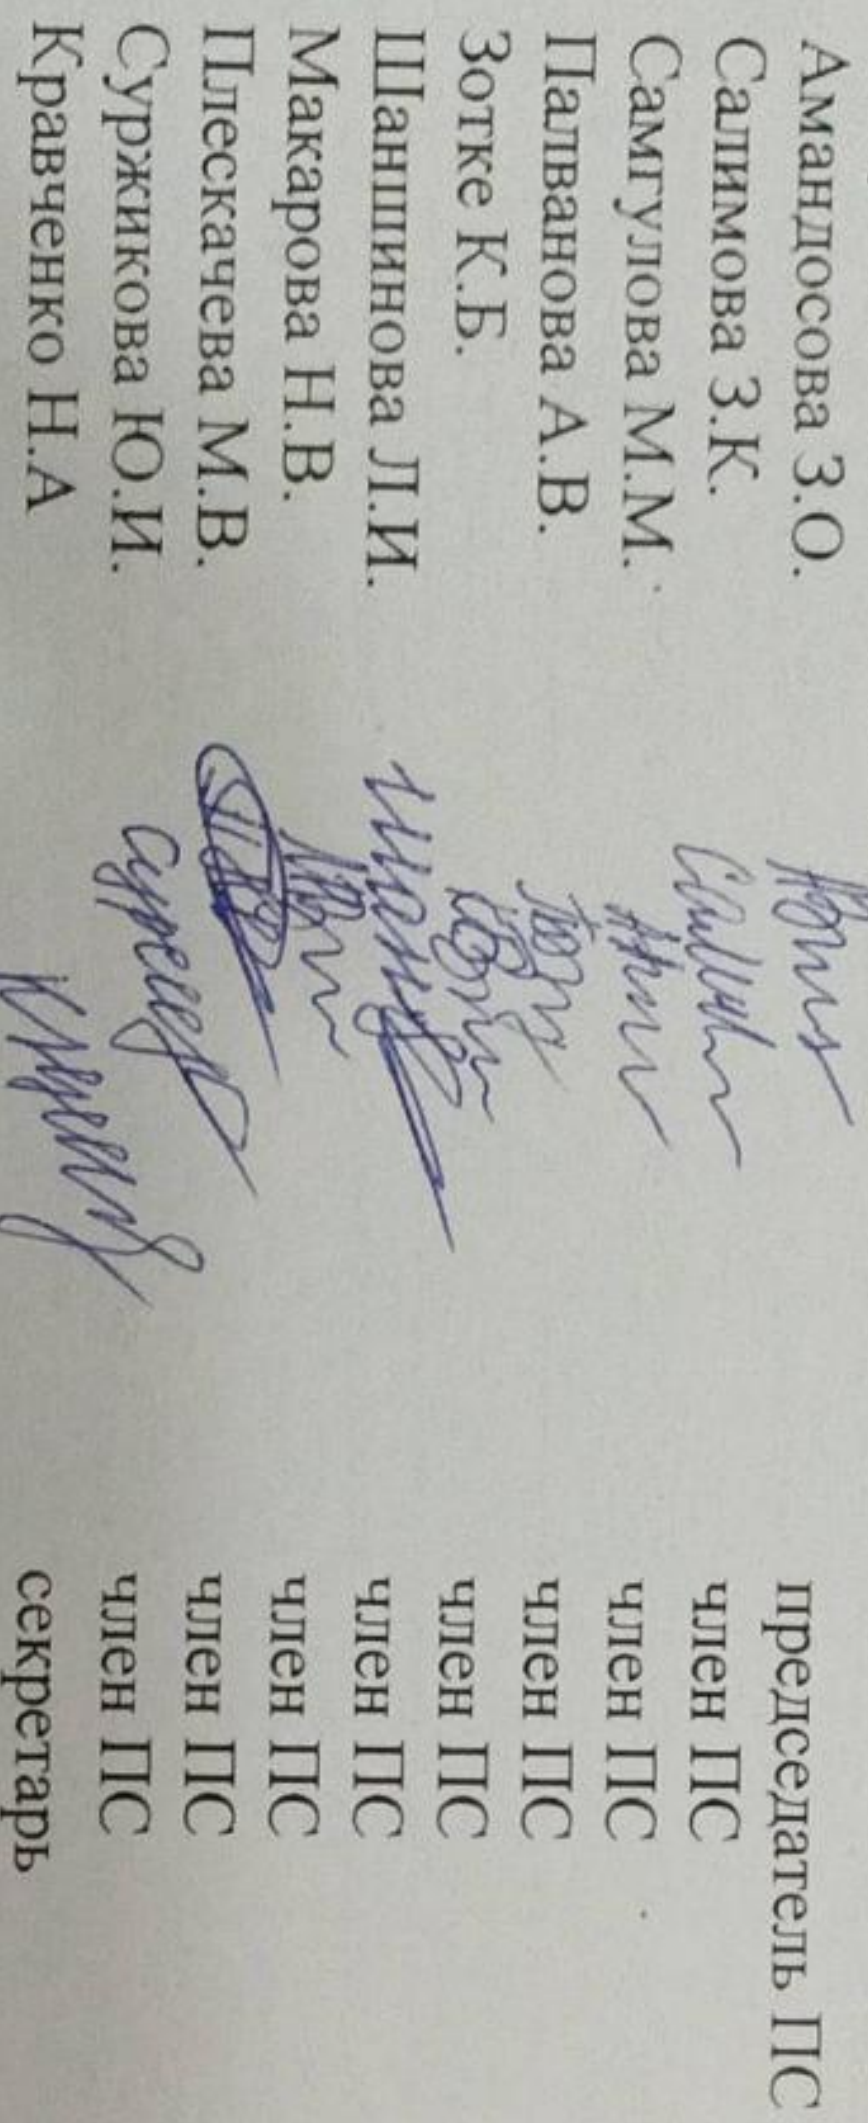 Амандосова З.О. председатель ПС
Салимова З.К. член ПС
Самгулова М.М. член ПС
Палванова А.В. член ПС
Зотке К.Б. член ПС
Шаншинова Л.И. член ПС
Макарова Н.В. член ПС
Плескачева М.В. член ПС
Суржикова Ю.И. член ПС
Кравченко Н.А секретарь